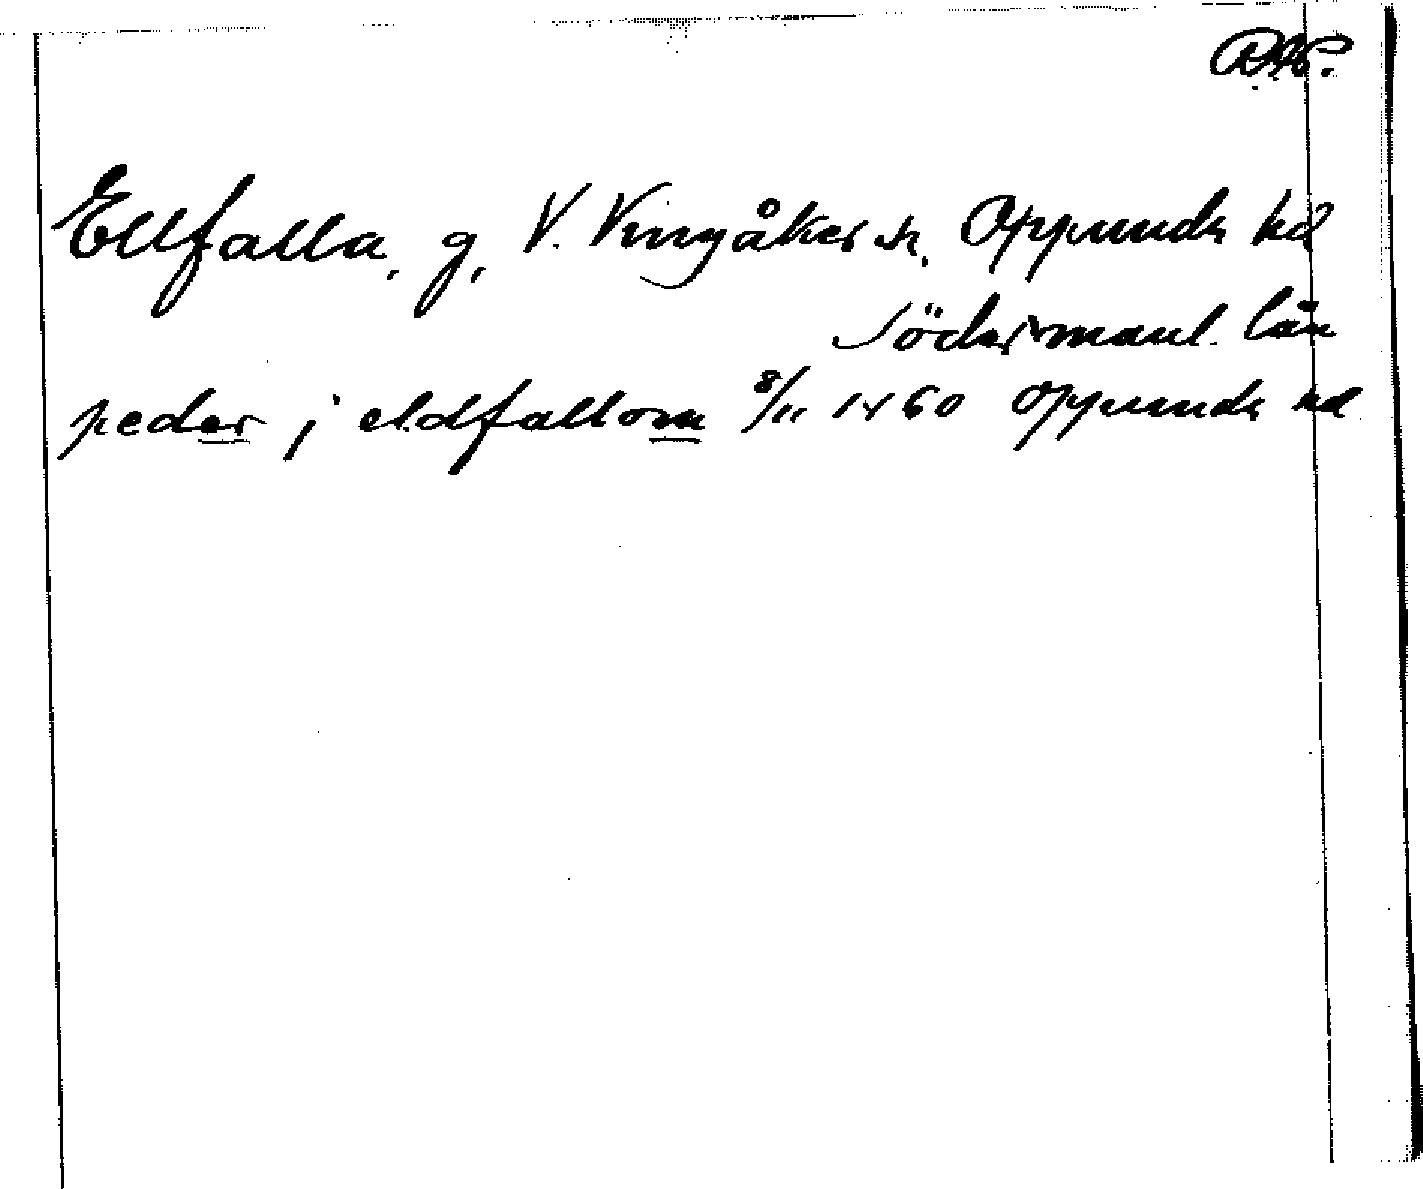 RAP.
Ellfalla, g, V. Vingåkers sn, Oppunda hd
Södermanl. län
peder j eldfallom 8/11 1460 Oppunda hd